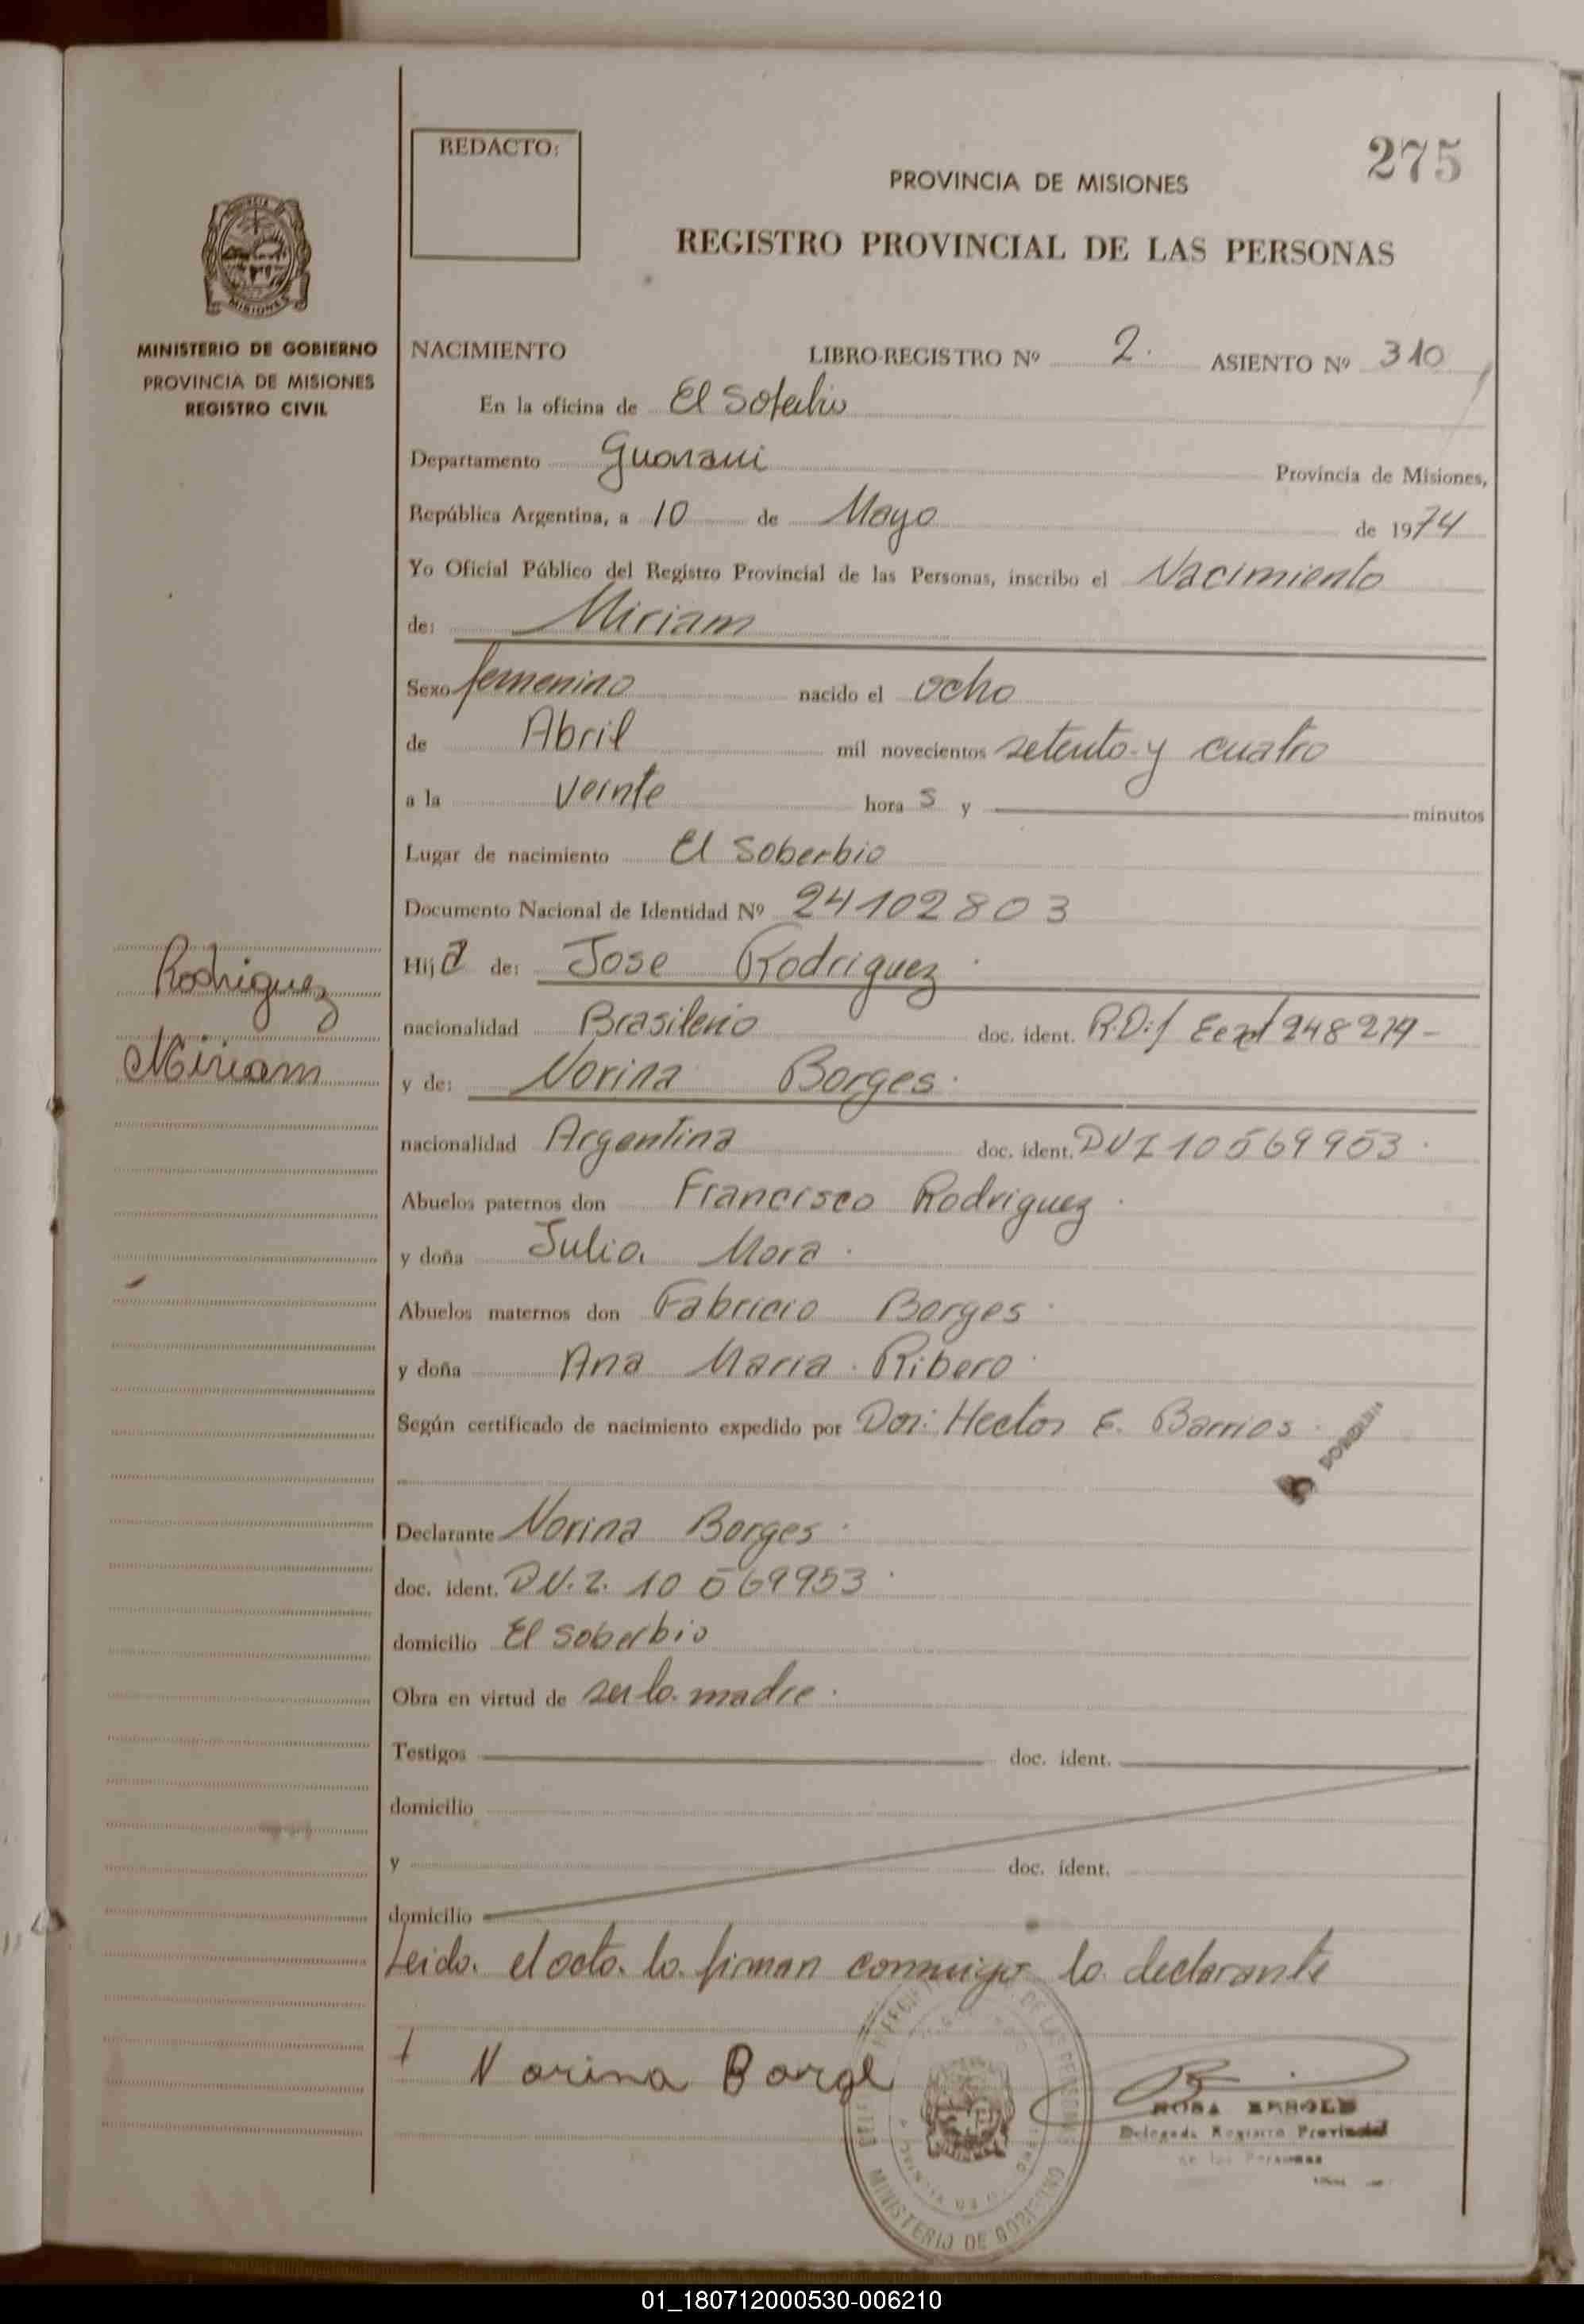 REDACTO:
275
PROVINCIA DE MISIONES
REGISTRO PROVINCIAL DE LAS PERSONAS
MISIONES
MINISTERIO DE GOBIERNO
PROVINCIA DE MISIONES
REGISTRO CIVIL
NACIMIENTO LIBRO-REGISTRO Nº 2. ASIENTO Nº 310
En la oficina de El Soberbio
Departamento Guarani Provincia de Misiones,
República Argentina, a 10 de Mayo de 1974
Yo Oficial Público del Registro Provincial de las Personas, inscribo el Nacimiento
de: Miriam
Sexo femenino nacido el ocho
de Abril mil novecientos setenta y cuatro
a la veinte hora s y minutos
Lugar de nacimiento El Soberbio
Documento Nacional de Identidad Nº 24102803
Rodriguez
Miriam
Hija de: Jose Rodriguez.
nacionalidad Brasileño doc. ident. R.D.
y de: Norina Borges.
nacionalidad Argentina doc. ident. DNI 10569953.
Abuelos paternos don Francisco Rodriguez.
y doña Julia Mora.
Abuelos maternos don Fabricio Borges.
y doña Ana Maria Ribero.
Según certificado de nacimiento expedido por Hector E. Barrios.
Declarante Norina Borges.
doc. ident. 10 569953.
domicilio El Soberbio
Obra en virtud de ser la madre.
Testigos doc. ident.
domicilio
y doc. ident.
domicilio
Leida el acta la firman conmigo la declarante
Norina Borge
MINISTERIO DE GOBIERNO
ROSA
Delegada Registro Provincial
de las Personas
01_180712000530-006210